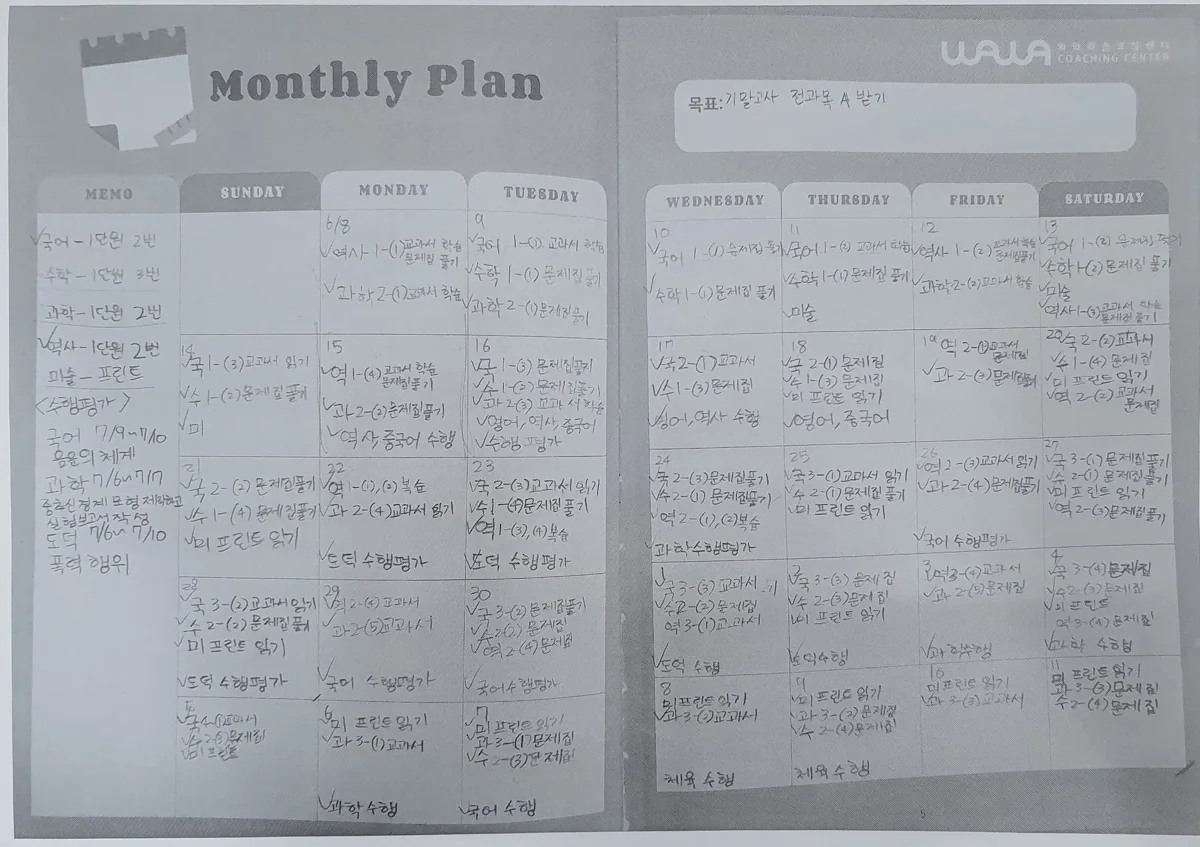 Monthly Plan
WAWA 와와학습코칭센터
COACHING CENTER
목표: 기말고사 전과목 A 받기
MEMO
✓국어-1단원 2번
수학-1단원 3번
과학-1단원 2번
✓역사-1단원 2번
미술-프린트
<수행평가>
국어 7/9~7/10
음운의 체계
과학 7/6~7/17
중추신경계 모형 제작하고
실험보고서 작성
도덕 7/6~7/10
폭력 행위
SUNDAY
MONDAY
TUESDAY
WEDNESDAY
THURSDAY
FRIDAY
SATURDAY
6/8
✓역사 1-(1)교과서 학습
문제집 풀기
✓과학2-(1)교과서 학습
9
✓국어 1-(1) 교과서 학습
✓수학 1-(1) 문제집 풀기
✓과학 2-(1)문제집풀기
10
✓국어 1-(1) 문제집 풀기
✓수학 1-(1)문제집 풀기
11
✓국어 1-(2) 교과서 학습
✓수학1-(1) 문제집 풀기
✓미술
12
✓역사 1-(2)교과서 학습
문제집 풀기
✓과학2-(2)교과서 학습
13
✓국어 1-(2) 문제집 풀기
✓수학1-(2)문제집 풀기
✓미술
✓역사1-(3)교과서 학습
문제집 풀기
14
✓국 1-(3)교과서 읽기
✓수 1-(2)문제집풀기
✓미
15
✓역 1-(4)교과서 학습
문제집풀기
✓과2-(2)문제집풀기
✓역사, 중국어 수행
16
✓국 1-(3) 문제집풀기
✓수 1-(3) 문제집풀기
✓과 2-(3) 교과서 학습
✓영어, 역사, 중국어
✓수행 평가
17
✓국2-(1)교과서
✓수1-(3)문제집
✓영어, 역사 수행
18
✓국 2-(1)문제집
✓수 1-(3) 문제집
✓미 프린트 읽기
✓영어, 중국어
19
✓역 2-(1)교과서
문제집
✓과 2-(3)문제집풀기
20
✓국 2-(2)교과서
✓수 1-(4) 문제집
✓미 프린트 읽기
✓역 2-(2)교과서
문제집
21
✓국 2-(2) 문제집풀기
✓수 1-(4) 문제집풀기
✓미 프린트 읽기
22
✓역 1-(1),(2)복습
✓과 2-(4)교과서 읽기
✓도덕 수행평가
23
✓국 2-(3)교과서 읽기
✓수 1-(4)문제집풀기
✓역 1-(3),(4)복습
✓도덕 수행평가
24
✓국 2-(3)문제집풀기
✓수 2-(1) 문제집풀기
✓역 2-(1),(2)복습
✓과학수행평가
25
✓국3-(1)교과서 읽기
✓수 2-(1) 문제집풀기
✓미 프린트 읽기
26
✓역 2-(3)교과서 읽기
✓과 2-(4)문제집풀기
✓국어 수행평가
27
✓국 3-(1) 문제집풀기
✓수 2-(1) 문제집풀기
✓미 프린트 읽기
✓역 2-(3)문제집풀기
28
✓국 3-(2)교과서읽기
✓수 2-(2)문제집풀기
✓미 프린트 읽기
✓도덕 수행평가
29
✓역 2-(4)교과서
✓과2-(5)교과서
✓국어 수행평가
30
✓국3-(2)문제집풀기
✓수2-(2) 문제집
✓역 2-(4)문제집
✓국어수행평가
1
✓국 3-(3) 교과서
✓수2-(2) 문제집
역 3-(1)교과서
✓도덕 수행
2
✓국 3-(3) 문제집
✓수 2-(3)문제집
✓미 프린트 읽기
✓도덕수행
3
✓역3-(4)교과서
✓과 2-(5)문제집
✓과학수행
4
✓국 3-(4)문제집
✓수2-(3)문제집
✓미 프린트
역3-(4)문제집
✓과학 수행
5
✓국4-(1)교과서
✓수2-(3)문제집
✓미 프린트
6
✓미 프린트 읽기
✓과 3-(1)교과서
✓과학 수행
7
✓미 프린트 읽기
✓과 3-(1)문제집
✓수 2-(3)문제집
✓국어 수행
8
미 프린트 읽기
✓과3-(2)교과서
체육 수행
9
✓미 프린트 읽기
✓과 3-(2) 문제집
✓수 2-(4)문제집
체육 수행
10
미 프린트 읽기
✓과 3-(3)교과서
11
미 프린트 읽기
과 3-(3) 문제집
수 2-(4) 문제집
5